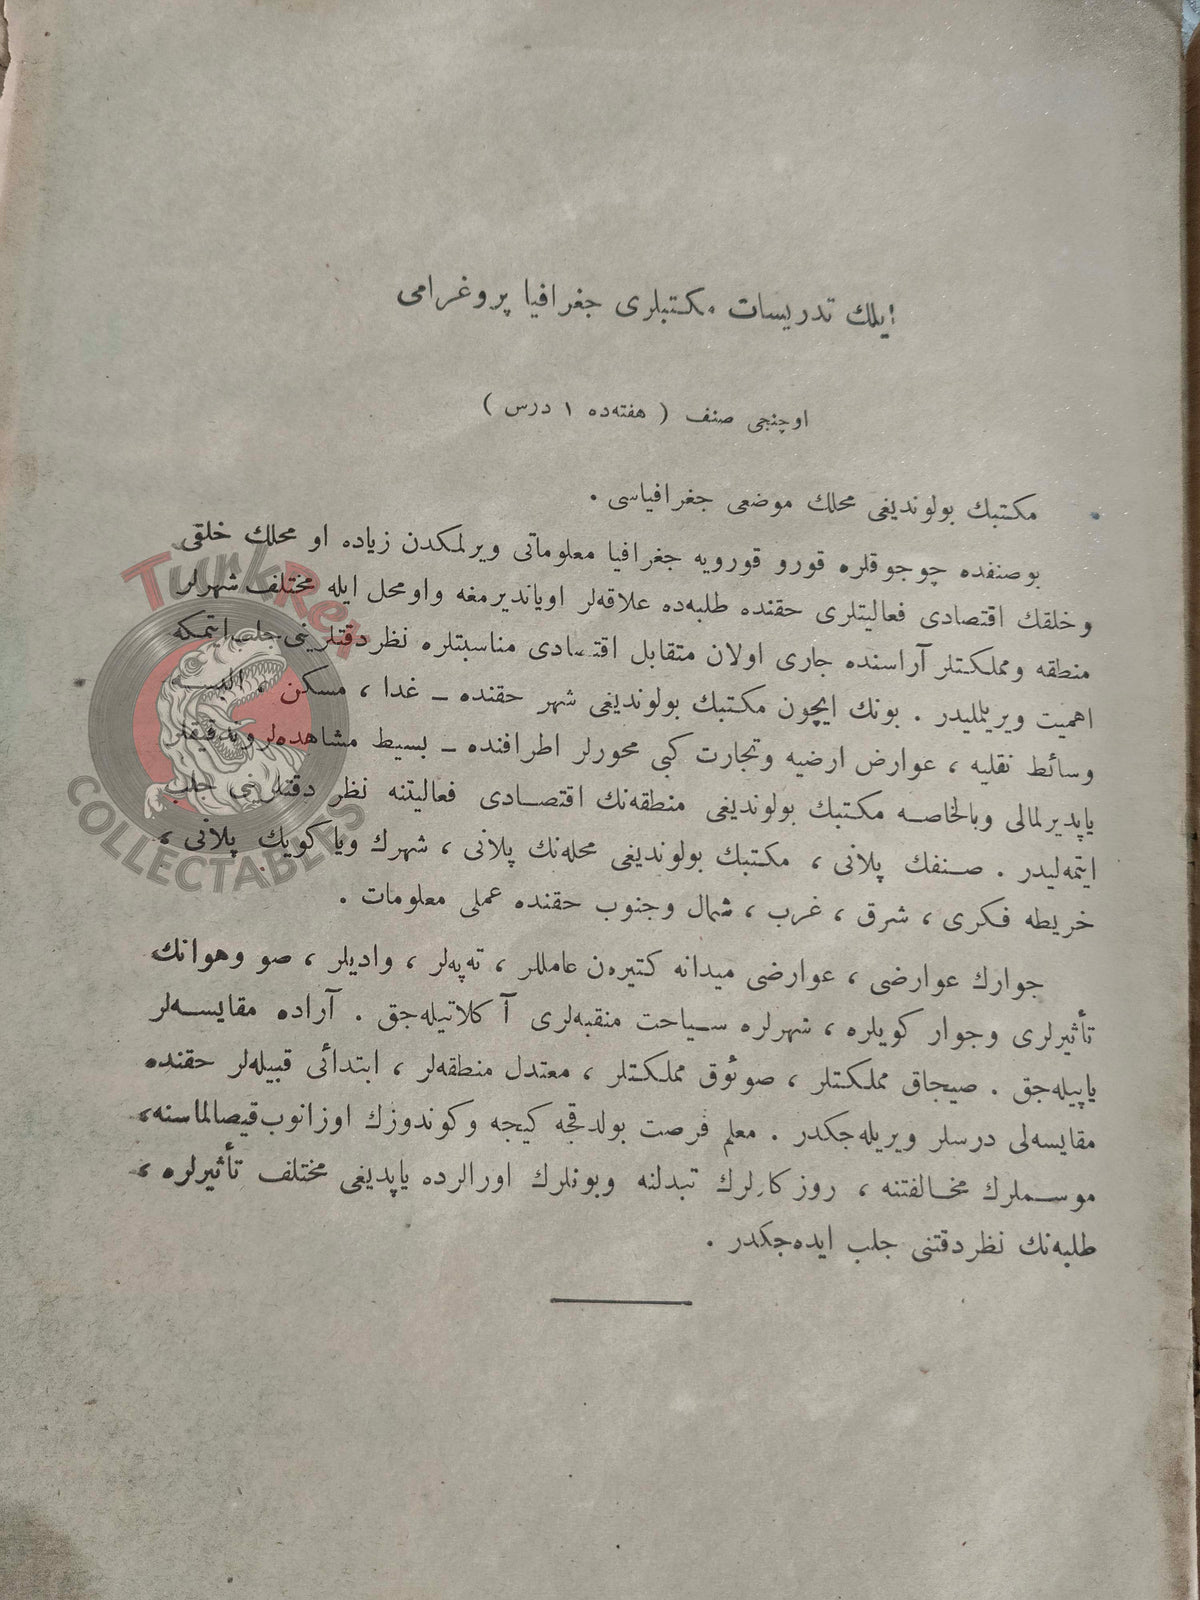 ایلك تدریسات مكتبلری جغرافیا پروغرامی
اوچنجی صنف ( هفته‌ده ۱ درس )
مكتبك بولوندیغی محلك موضعی جغرافیاسی .
بوصنفده چوجوقلره قورو قورویه جغرافیا معلوماتی ویرلمكدن زیاده او محلك خلقی
وخلقك اقتصادی فعالیتلری حقنده طلبه‌ده علاقه‌لر اویاندیرمغه واومحل ایله مختلف شهرلر
منطقه ومملكتلر آراسنده جاری اولان متقابل اقتصادی مناسبتلره نظردقتلرینی جلب ایتمكه
اهمیت ویریلملیدر . بونك ایچون مكتبك بولوندیغی شهر حقنده ـ غدا ، مسكن ،
وسائط نقلیه ، عوارض ارضیه وتجارت كبی محورلر اطرافنده ـ بسیط مشاهده‌لر
یاپدیرلمالی وبالخاصه مكتبك بولوندیغی منطقه‌نك اقتصادی فعالیتنه نظر دقتلرینی جلب
ایتمه‌لیدر . صنفك پلانی ، مكتبك بولوندیغی محله‌نك پلانی ، شهرك ویا كویك پلانی ،
خریطه فكری ، شرق ، غرب ، شمال وجنوب حقنده عملی معلومات .
جوارك عوارضی ، عوارضی میدانه كتیره‌ن عامللر ، تپه‌لر ، وادیلر ، صو وهوانك
تأثیرلری وجوار كویلره ، شهرلره سیاحت منقبه‌لری آكلاتیله‌جق . آراده مقایسه‌لر
یاپیله‌جق . صیجاق مملكتلر ، صوئوق مملكتلر ، معتدل منطقه‌لر ، ابتدائی قبیله‌لر حقنده
مقایسه‌لی درسلر ویریله‌جكدر . معلم فرصت بولدقجه كیجه وكوندوزك اوزانوب قیصالماسنه،
موسملرك مخالفتنه ، روزكارلرك تبدلنه وبونلرك اورالرده یاپدیغی مختلف تأثیرلره ،
طلبه‌نك نظردقتنی جلب ایده‌جكدر .
TurkRex
COLLECTABLES